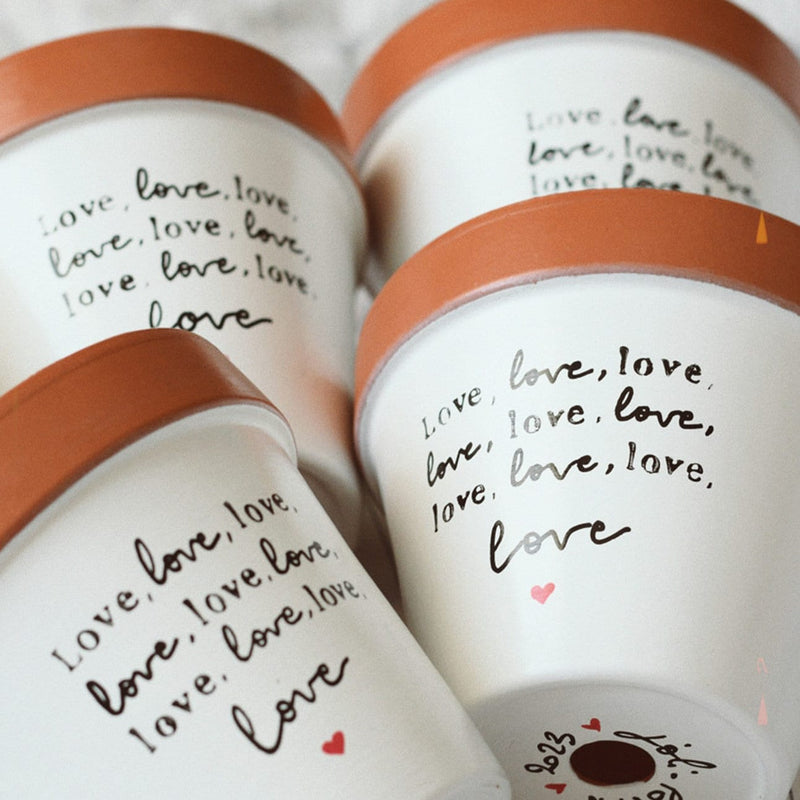 Love, love, love,
love, love, love,
love, love, love,
love
Love, love, love,
love, love, love,
love, love, love,
Love, love, love,
love, love, love,
love, love, love,
love
Love, love, love,
love, love, love,
love, love, love,
love
2023
joli